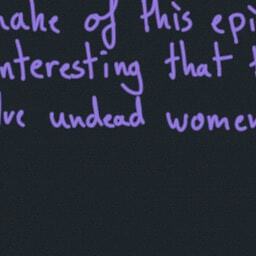 make of this epi
nteresting that t
lve undead women